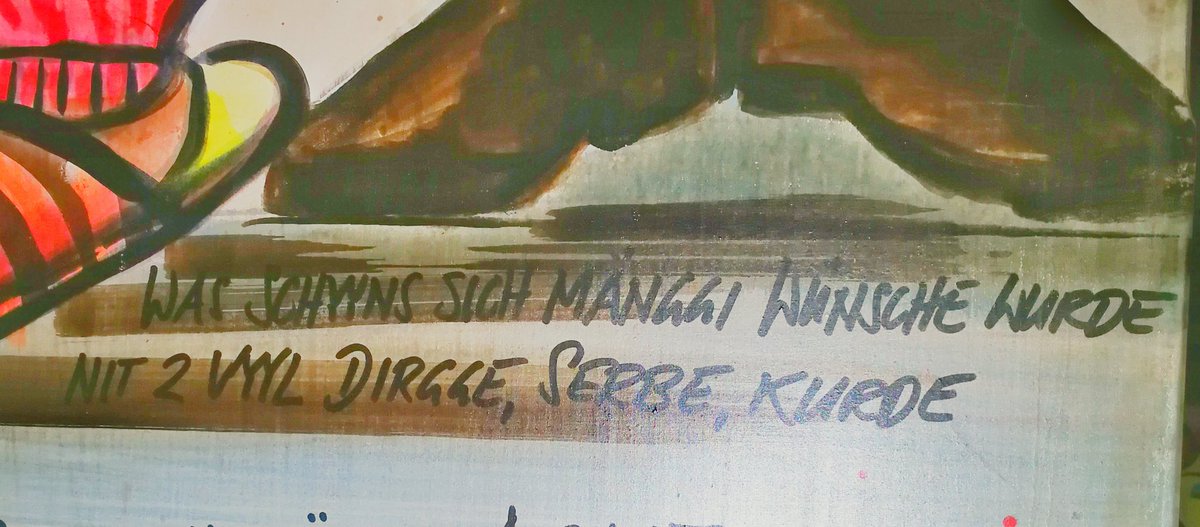 WAS SCHYYNS SICH MÄNGGI WÜNSCHE WURDE
NIT 2 VYYL DIRGGE, SERBE, KURDE